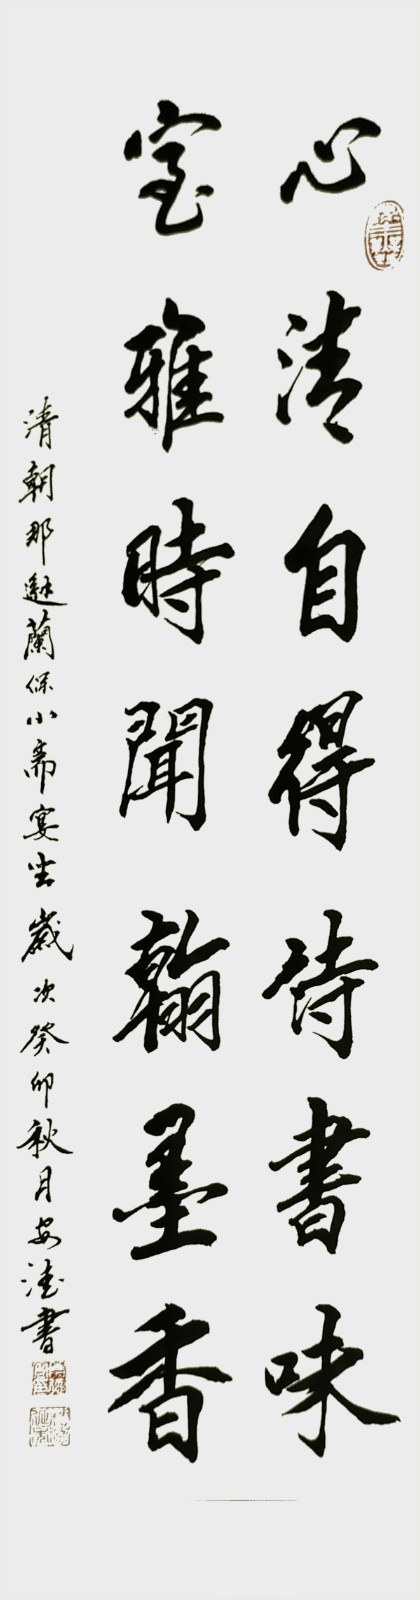 心清自得詩書味
室雅時聞翰墨香
清朝那遜蘭保小齋宴坐歲次癸卯秋月安德書